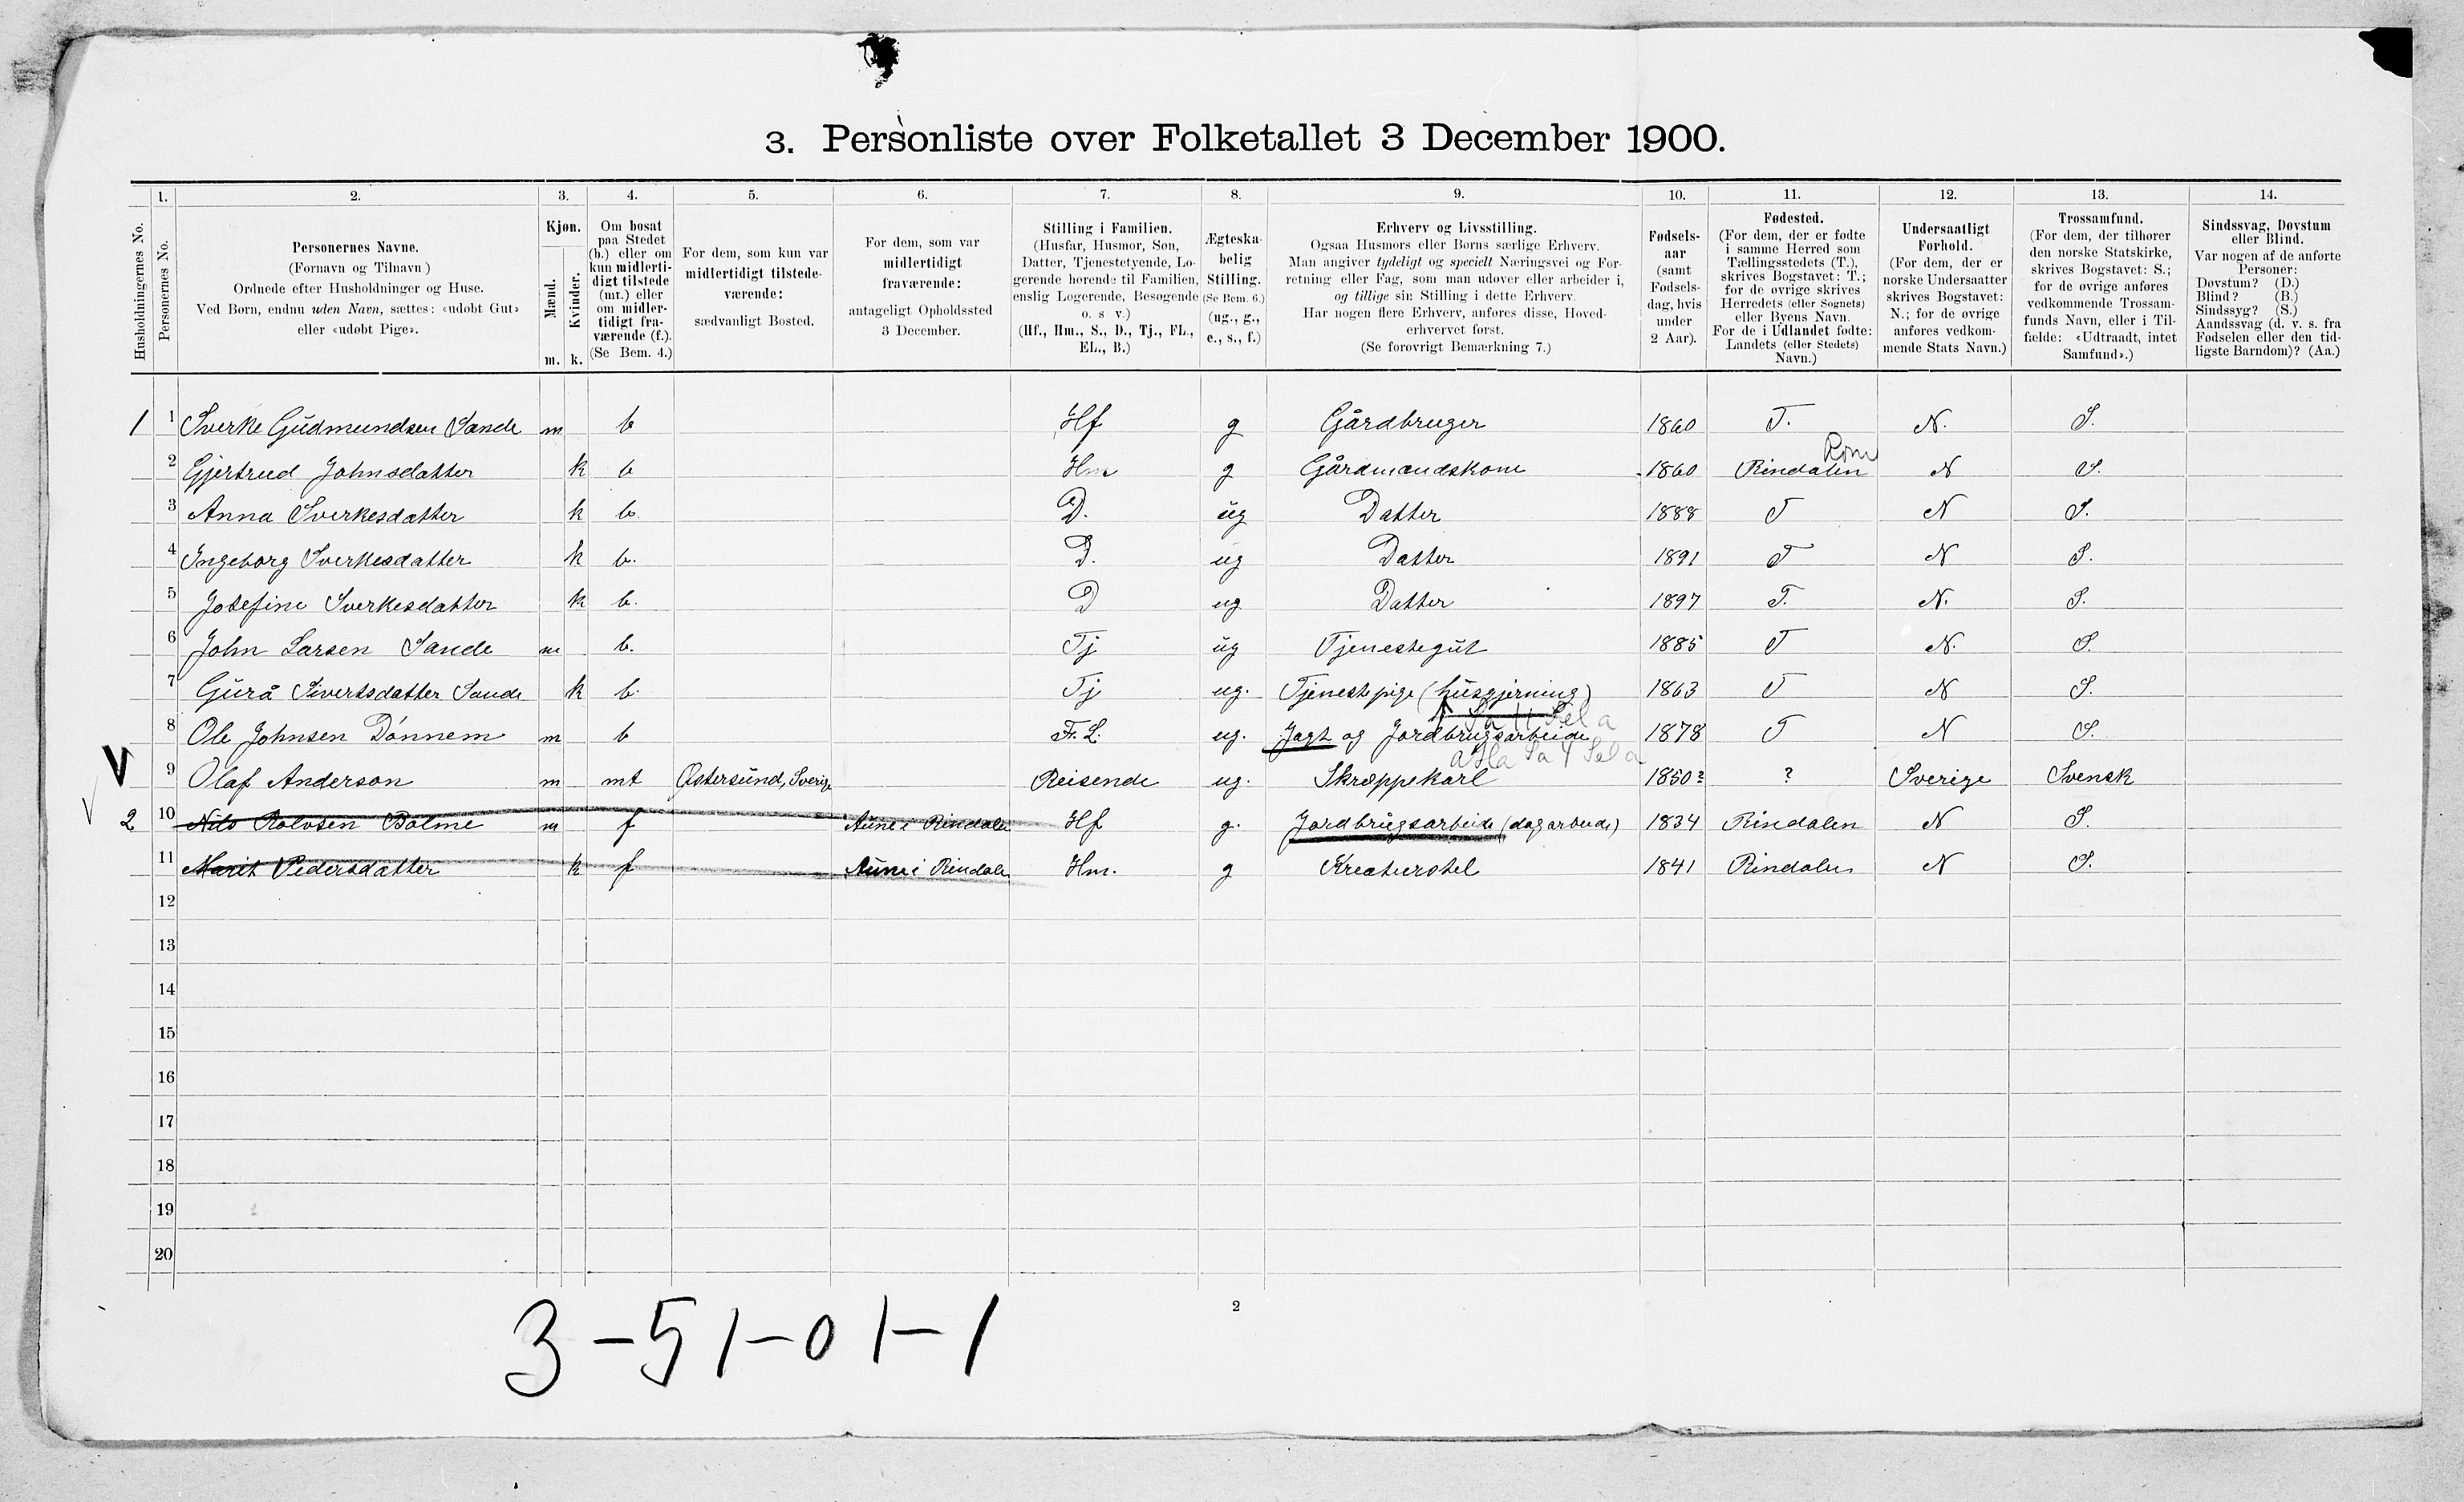 3. Personliste over Folketallet 3 December 1900.
1. 2. 3. 4. 5. 6. 7. 8. 9. 10. 11. 12. 13. 14.
Husholdningernes No.
Personernes No.
Personernes Navne.
(Fornavn og Tilnavn)
Ordnede efter Husholdninger og Huse.
Ved Børn, endnu uden Navn, sættes: «udøbt Gut»
eller «udøbt Pige».
Kjøn.
Mænd.
Kvinder.
m. k.
Om bosat
paa Stedet
(b.) eller om
kun midlerti-
digt tilstede
(mt.) eller
om midler-
tidigt fra-
værende (f.).
(Se Bem. 4.)
For dem, som kun var
midlertidigt tilstede-
værende:
sædvanligt Bosted.
For dem, som var
midlertidigt
fraværende:
antageligt Opholdssted
3 December.
Stilling i Familien.
(Husfar, Husmor, Søn,
Datter, Tjenestetyende, Lo-
gerende hørende til Familien,
enslig Logerende, Besøgende
o. s v.)
(Hf., Hm., S., D., Tj., FL.,
EL., B.)
Ægteska-
belig
Stilling.
(Se Bem. 6.)
(ug., g.,
e., s., f.)
Erhverv og Livsstilling.
Ogsaa Husmors eller Børns særlige Erhverv.
Man angiver tydeligt og specielt Næringsvei og For-
retning eller Fag, som man udøver eller arbeider i,
og tillige sin Stilling i dette Erhverv.
Har nogen flere Erhverv, anføres disse, Hoved-
erhvervet først.
(Se forøvrigt Bemærkning 7.)
Fødsels-
aar
(samt
Fødsels-
dag, hvis
under
2 Aar).
Fødested.
(For dem, der er fødte
i samme Herred som
Tællingsstedets (T.),
skrives Bogstavet: T.;
for de øvrige skrives
Herredets (eller Sognets)
eller Byens Navn.
For de i Udlandet fødte:
Landets (eller Stedets)
Navn.)
Undersaatligt
Forhold.
(For dem, der er
norske Undersaatter
skrives Bogstavet:
N.; for de øvrige
anføres vedkom-
mende Stats Navn.)
Trossamfund.
(For dem, der tilhører
den norske Statskirke,
skrives Bogstavet: S.;
for de øvrige anføres
vedkommende Trossam-
funds Navn, eller i Til-
fælde: «Udtraadt, intet
Samfund».)
Sindssvag, Døvstum
eller Blind.
Var nogen af de anførte
Personer:
Døvstum? (D.)
Blind? (B.)
Sindssyg? (S.)
Aandssvag (d. v. s. fra
Fødselen eller den tid-
ligste Barndom)? (Aa.)
1 1 Sverke Gudmundsen Sande m b Hf g Gårdbruger 1860 T. N. S.
Rom
2 Gjertrud Johnsdatter k b Hm g Gårdmandskone 1860 Rindalen N S.
3 Anna Sverkesdatter k b D. ug Datter 1888 T N S.
4 Ingeborg Sverkesdatter k b. D. ug Datter 1891 T N S.
5 Josefine Sverkesdatter k b. D ug Datter 1897 T. N. S.
6 John Larsen Sande m b. Tj ug Tjenestegut 1885 T N. S.
7 Gurå Sivertsdatter Sande k b. Tj ug. Tjenestepige (husgjerning) 1863 T N S.
8 Ole Johnsen Dønnem m b F.L. ug. Jagt og Jordbrugsarbeide 1878 T N S.
V 9 Olaf Anderson m mt Østersund, Sverige Reisende ug. Skræppekarl 1850? ? Sverige Svensk
2 10 Nils Rolvsen Bolme m f Aune i Rindalen Hf g. Jordbrugsarbeide (dagarbeide) 1834 Rindalen N S.
11 Marit Pedersdatter k f Aune i Rindalen Hm. g Kreaturstel 1841 Rindalen N S.
12
13
14
15
16
17
18
19
20
2
3-51-01-1